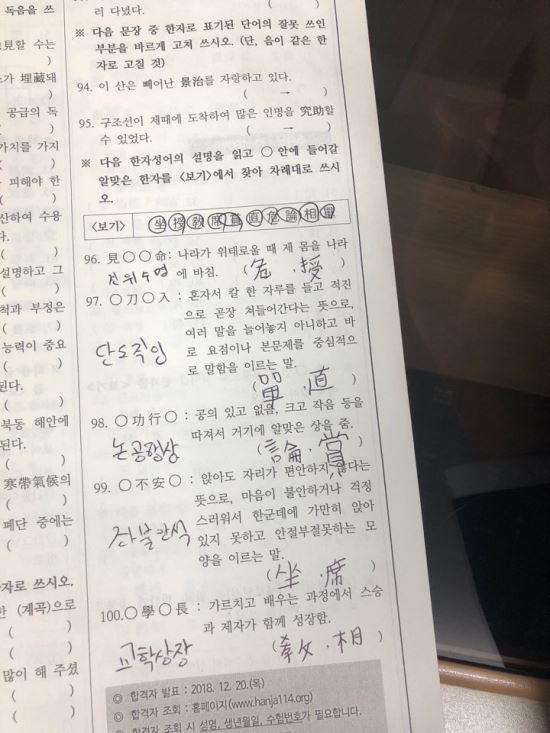 독음을 쓰
見할 수는
소가 埋藏돼
공급의 독
가지를 가지
피해야 한
산하여 수용
다.
설명하고 그
척과 부정은
능력이 중요
된다.
북동 해안에
된다.
寒帶氣候의
폐단 중에는
자로 쓰시오.
한 (계곡)으로
많이 해 주셨
러 다녔다. ( )
※ 다음 문장 중 한자로 표기된 단어의 잘못 쓰인
부분을 바르게 고쳐 쓰시오. (단, 음이 같은 한
자로 고칠 것)
94. 이 산은 빼어난 景治를 자랑하고 있다.
( → )
95. 구조선이 제때에 도착하여 많은 인명을 究助할
수 있었다. ( → )
※ 다음 한자성어의 설명을 읽고 ○ 안에 들어갈
알맞은 한자를 <보기>에서 찾아 차례대로 쓰시
오.
<보기> 坐 授 敎 席 賞 直 危 論 相 單
96. 見○○命: 나라가 위태로울 때 제 몸을 나라
견위수명 에 바침. (危 , 授)
97. ○刀○入 : 혼자서 칼 한 자루를 들고 적진
으로 곧장 쳐들어간다는 뜻으로,
여러 말을 늘어놓지 아니하고 바
단도직입 로 요점이나 본문제를 중심적으
로 말함을 이르는 말.
(單 , 直)
98. ○功行○ : 공의 있고 없음, 크고 작음 등을
따져서 거기에 알맞은 상을 줌.
논공행상 (論 , 賞)
99. ○不安○ : 앉아도 자리가 편안하지 않다는
뜻으로, 마음이 불안하거나 걱정
좌불안석 스러워서 한군데에 가만히 앉아
있지 못하고 안절부절못하는 모
양을 이르는 말.
(坐 , 席)
100.○學○長 : 가르치고 배우는 과정에서 스승
과 제자가 함께 성장함.
교학상장 (敎 , 相)
◎ 합격자 발표 : 2018. 12. 20.(목)
◎ 합격자 조회 : 홈페이지(www.hanja114.org)
◎ 합격자 조회 시 성명, 생년월일, 수험번호가 필요합니다.